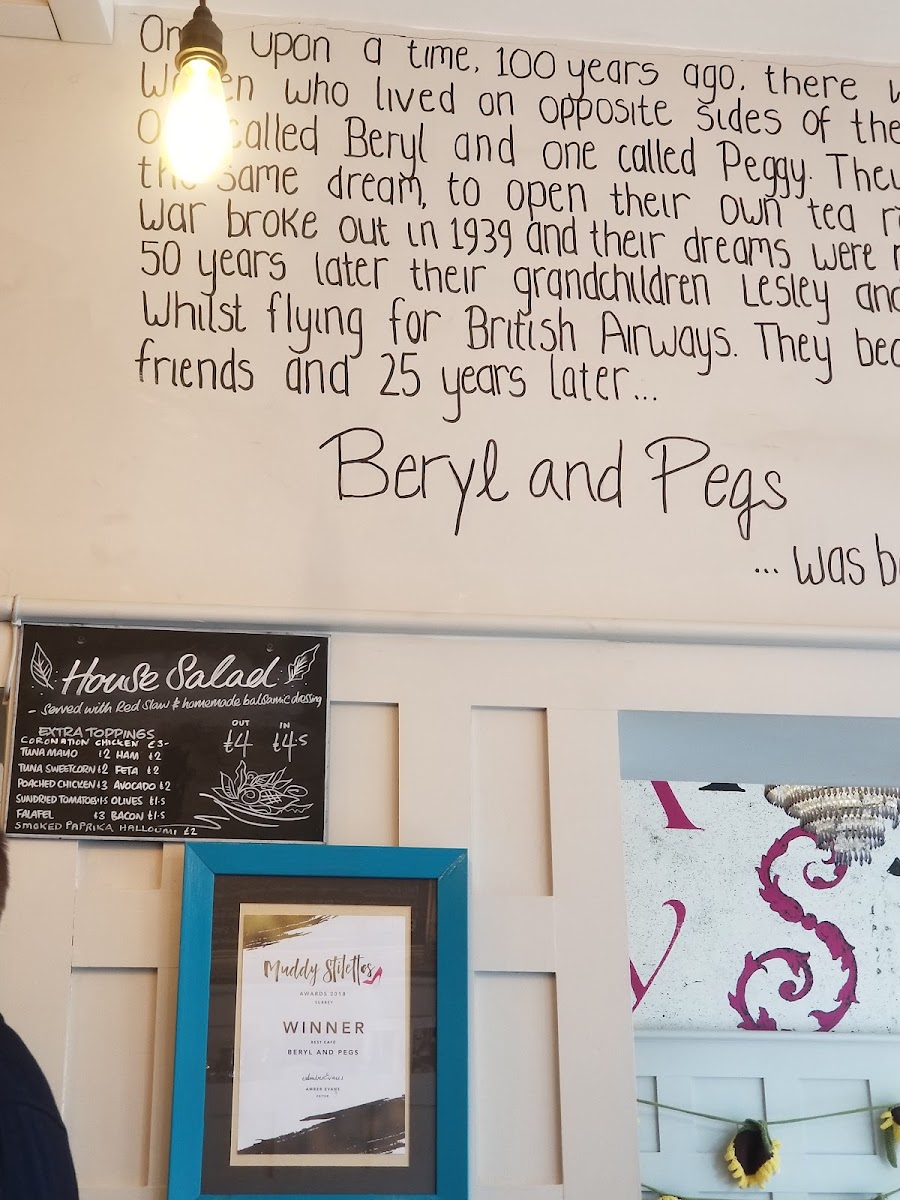 upon a time, 100 years ago, there
who lived on opposite sides of the
called Beryl and one called Peggy. They
same dream, to open their own tea
War broke out in 1939 and their dreams were
50 years later their grandchildren Lesley and
Whilst flying for British Airways. They
friends and 25 years later...
Beryl and Pegs
... was
House Salad
- Served with Red Slaw & homemade balsamic dressing
EXTRA TOPPINGS
CORONATION CHICKEN £3-
TUNA MAYO £2 HAM £2
TUNA SWEETCORN £2 FETA £2
POACHED CHICKEN £3 AVOCADO £2
SUNDRIED TOMATOES 1.5 OLIVES £1.5
FALAFEL £3 BACON £1.5
SMOKED PAPRIKA HALLOUMI £2
OUT IN
£4 £4.5
Muddy Stilettos
AWARDS 2018
SURREY
WINNER
BEST CAFÉ
BERYL AND PEGS
AMBER EVANS
EDITOR